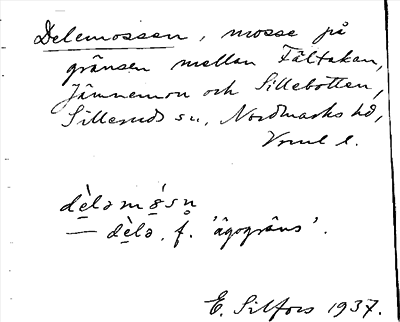 Delemossen, mosse på
gränsen mellan Fältakan,
Jämnemon och Sillebotten,
Silleruds sn., Nordmarks hd,
Vrml l.
dè̱ləmó̱sn̥
— dè̱lə. f. 'ägogräns'.
E. Silfors 1937.